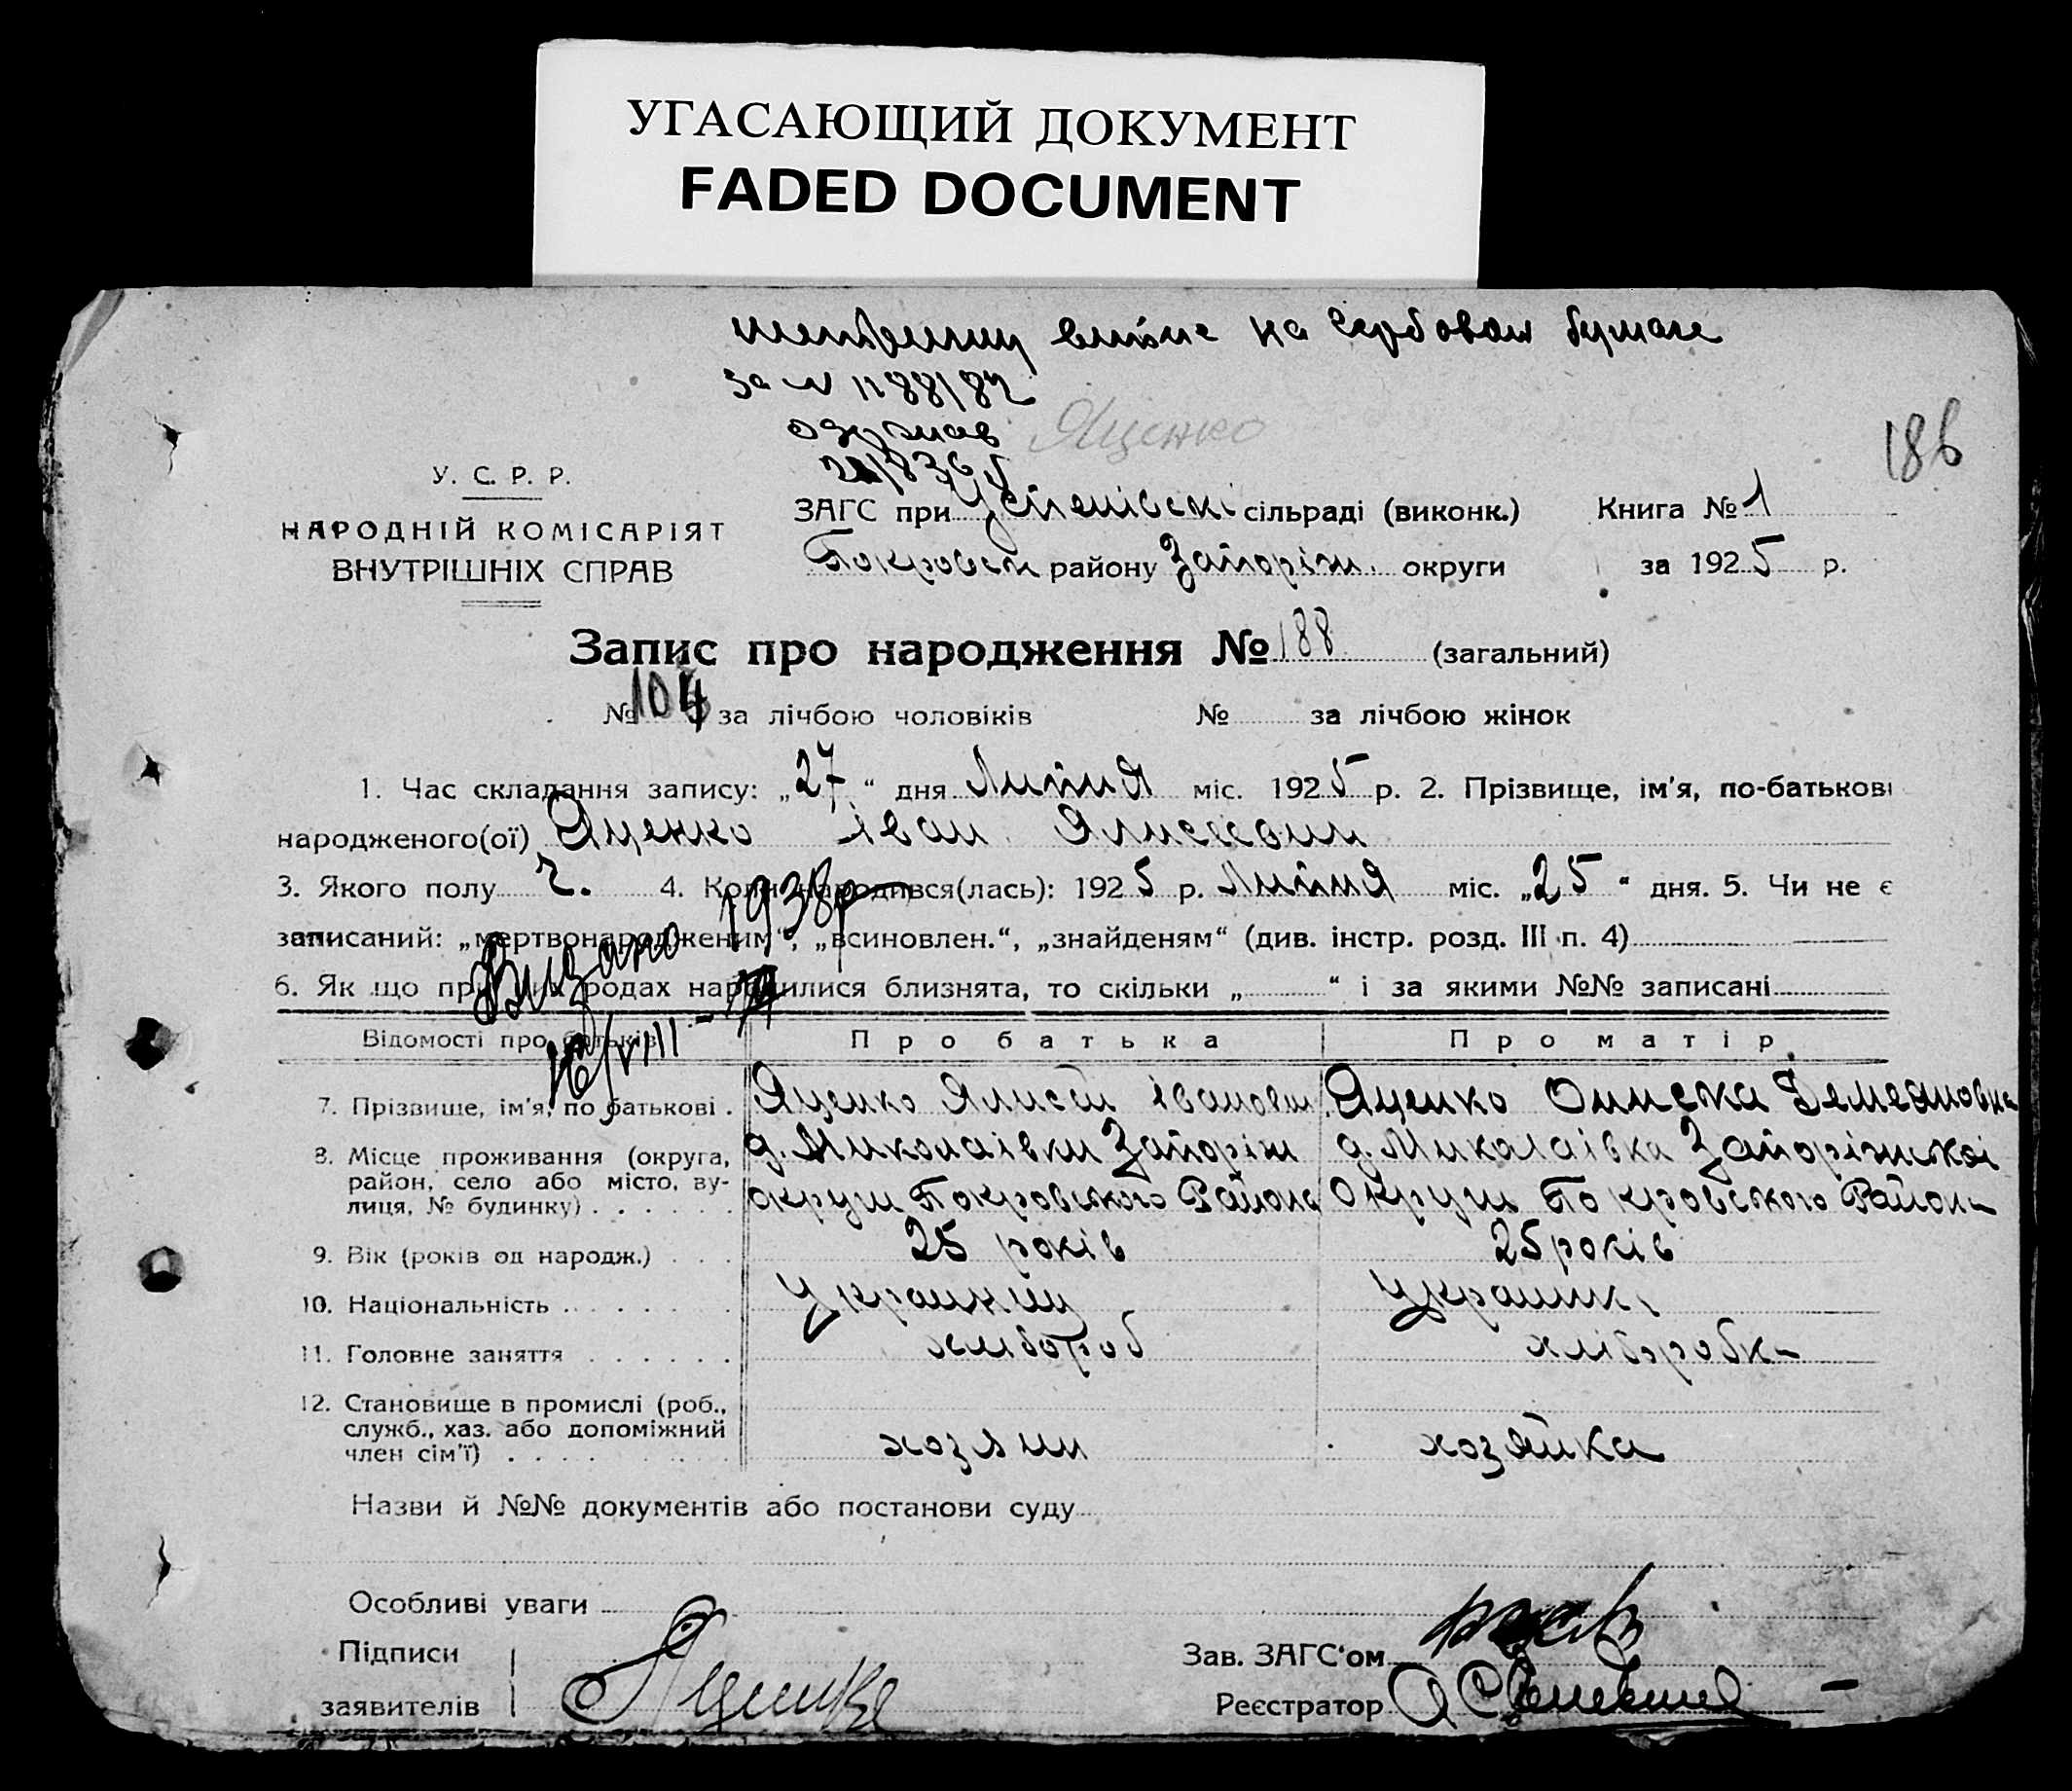 УГАСАЮЩИЙ ДОКУМЕНТ
FADED DOCUMENT
на гербовой бумаге
за №
Яценко
186
У. С. Р. Р.
НАРОДНІЙ КОМІСАРІЯТ
ВНУТРІШНІХ СПРАВ
ЗАГС при Успенівскі сільраді (виконк.) Книга № 1
Покровск району Запоріж. округи за 1925 р.
Запис про народження № 188 (загальний)
№ 104 за лічбою чоловіків № за лічбою жінок
1. Час складання запису: „27“ дня Липня міс. 1925 р. 2. Прізвище, ім'я, по-батькові
народженого(ої) Яценко Іван
3. Якого полу ч. 4. Коли народився(лась): 1925 р. Липня міс. „25“ дня. 5. Чи не є
записаний: „мертвонародженим“, „всиновлен.“, „знайденям“ (див. інстр. розд. III п. 4)
6. Як що при цих родах народилися близнята, то скільки „ “ і за якими №№ записані
Видано 1938р
16/VIII
Відомості про батьків Про батька Про матір
7. Прізвище, ім'я, по батькові . Яценко Ялисей Іванович Яценко Демедяновна
8. Місце проживання (округа, район, село або місто, вулиця, № будинку) . . . . . . д. Миколаівки Запоріж округи Покровського Района д. Миколаівка Запоріжскоі Округи Покровського Района
9. Вік (років од народж.) . . . 25 років 25 років
10. Національність . . . . . . Украинец Украинка
11. Головне заняття . . . . . . хлібороб хліборобка
12. Становище в промислі (роб., служб., хаз. або допоміжний член сім'ї) . . . . хозяин хозяйка
Назви й №№ документів або постанови суду
Особливі уваги
Підписи
заявителів Яценко
Зав. ЗАГС'ом
Реєстратор